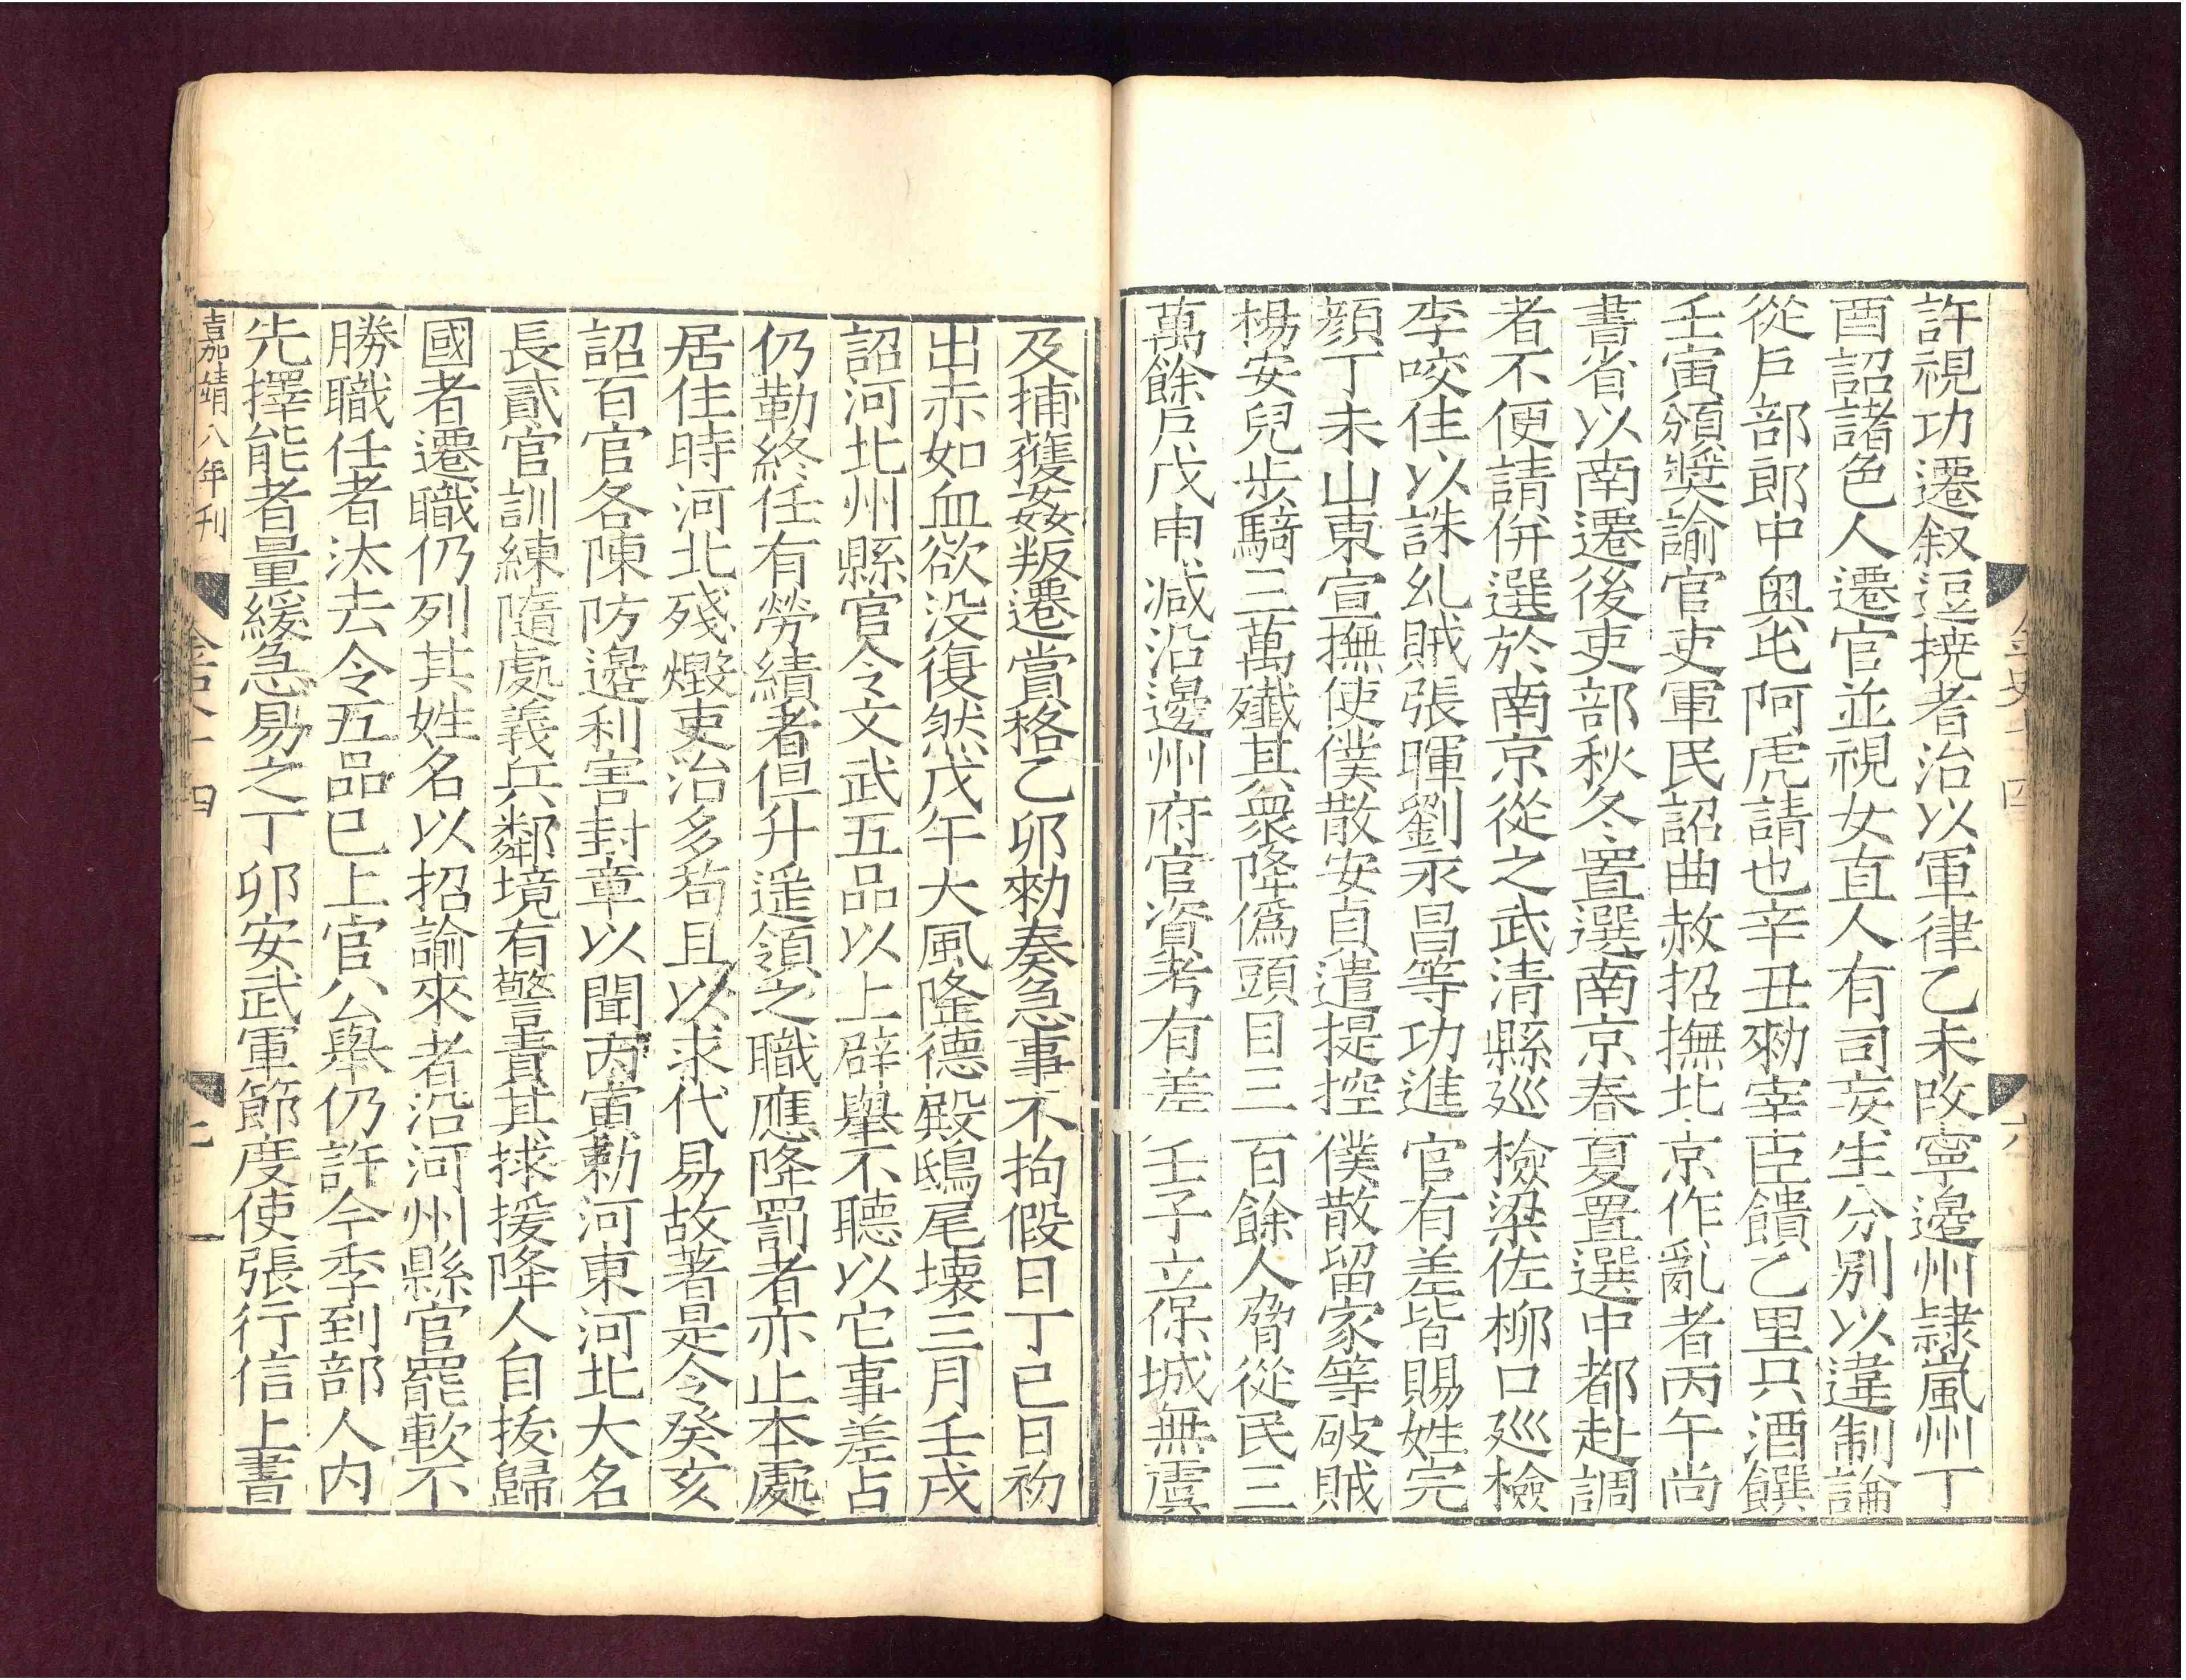 許視功遷叙逗撓者治以軍律乙未改寧邊州隷嵐州丁
酉詔諸色人遷官並視女直人有司妄生分別以違制論
從戶部郎中奥屯阿虎請也辛丑勑宰臣饋乙里只酒饌
壬寅頒奬諭官吏軍民詔曲赦招撫北京作亂者丙午尚
書省以南遷後吏部秋冬置選南京春夏置選中都赴調
者不便請併選於南京從之武清縣廵檢梁佐柳口廵檢
李咬住以誅乣賊張暉劉永昌等功進官有差皆賜姓完
顔丁未山東宣撫使僕散安貞遣提控僕散留家等破賊
楊安兒步騎三萬殲其衆降僞頭目三百餘人脅從民三
萬餘戶戊申减沿邊州府官資考有差壬子立保城無虞
金史十四
六
及捕獲姦叛遷賞格乙卯勑奏急事不拘假日丁巳日初
出赤如血欲没復然戊午大風隆德殿鴟尾壞三月壬戌
詔河北州縣官令文武五品以上辟舉不聽以它事差占
仍勒終任有勞績者但升遥領之職應降罰者亦止本處
居住時河北殘燬吏治多苟且以求代易故著是令癸亥
詔百官各陳防邊利害封章以聞丙寅勅河東河北大名
長貳官訓練隨處義兵鄰境有警責其捄援降人自拔歸
國者遷職仍列其姓名以招諭來者沿河州縣官罷軟不
勝職任者汰去令五品已上官公舉仍許今季到部人内
先擇能者量緩急易之丁卯安武軍節度使張行信上書
嘉靖八年刊
金史十四